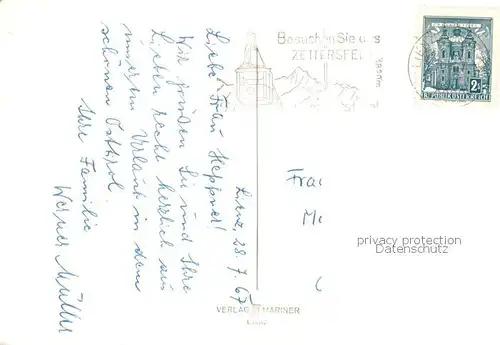 Lienz, 28.7.67
Liebe Frau Heppner!
Wir grüßen Sie und Ihre
Lieben recht herzlich aus
unserem Urlaub in dem
schönen Osttirol.
Ihre Familie
Werner Müller
Besuchen Sie das
ZETTERSFELD
2 S
REPUBLIK ÖSTERREICH
Frau
privacy protection
Datenschutz
VERLAG MARINER
Lienz